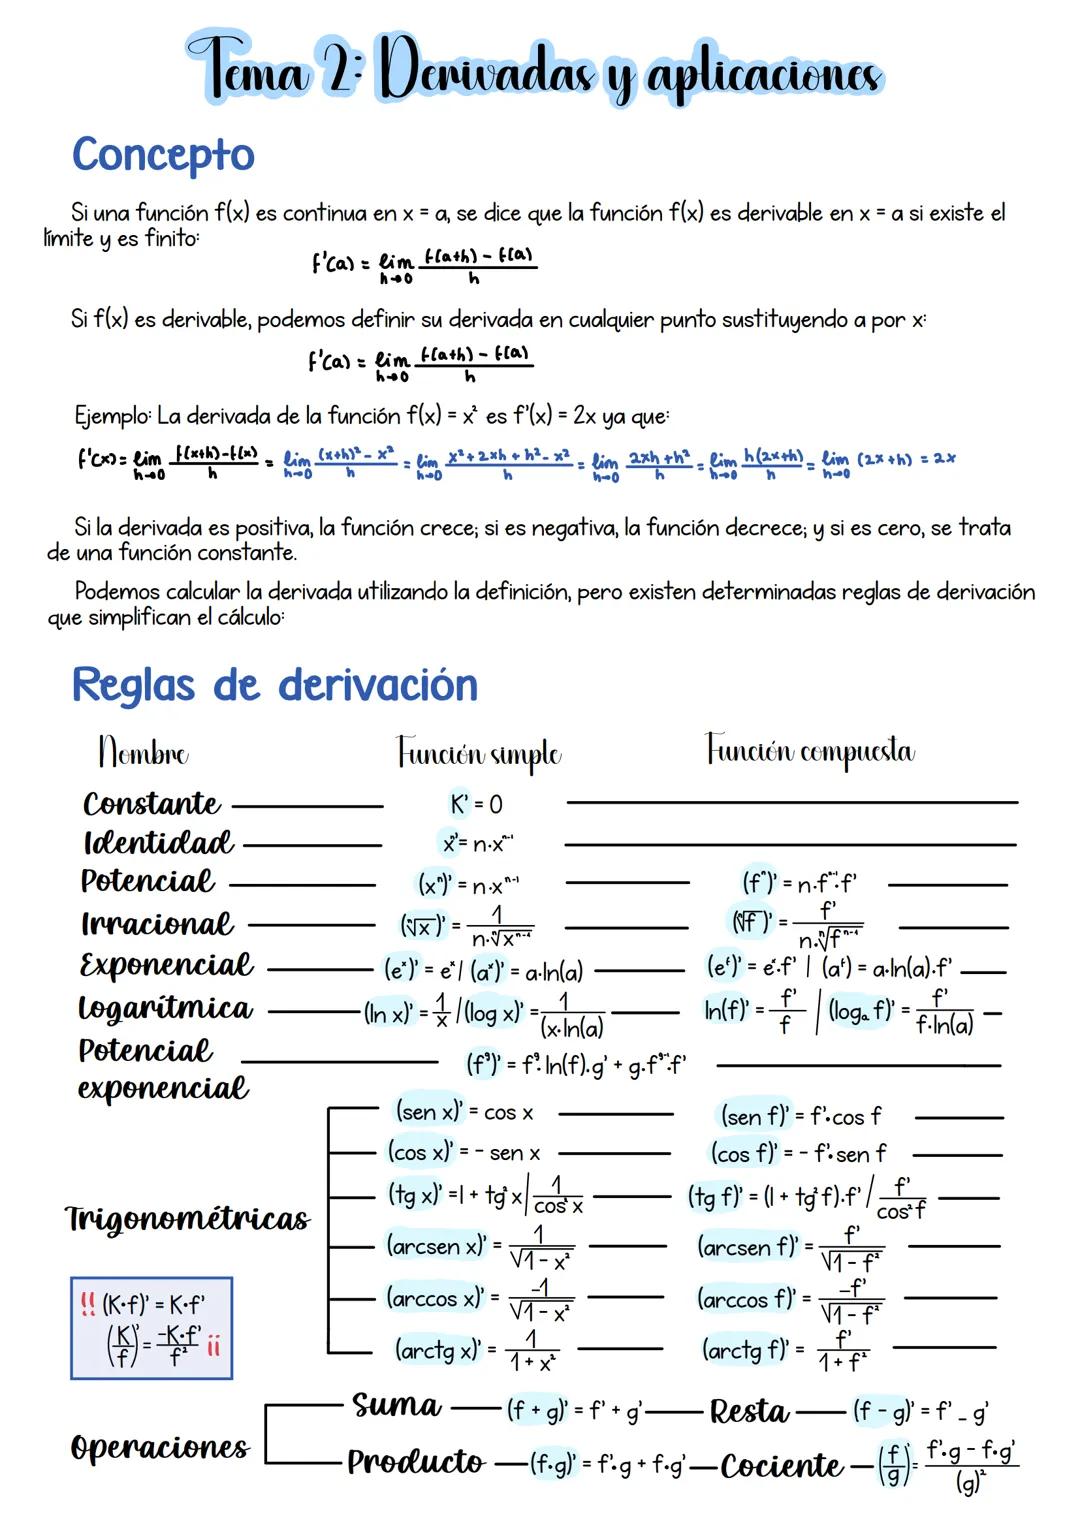 Tema 2: Derivadas y aplicaciones
Concepto
Si una función f(x) es continua en x = a, se dice que la función f(x) es derivable en x = a si existe el
límite y es finito:
f'(a) = lim h→0 (f(a+h) - f(a))/h
Si f(x) es derivable, podemos definir su derivada en cualquier punto sustituyendo a por x:
f'(a) = lim h→0 (f(a+h) - f(a))/h
Ejemplo: La derivada de la función f(x) = x² es f'(x) = 2x ya que:
f'(x) = lim h→0 (f(x+h)-f(x))/h = lim h→0 ((x+h)² - x²)/h = lim h→0 (x² + 2xh + h² - x²)/h = lim h→0 (2xh + h²)/h = lim h→0 h(2x+h)/h = lim h→0 (2x+h) = 2x
Si la derivada es positiva, la función crece; si es negativa, la función decrece; y si es cero, se trata
de una función constante.
Podemos calcular la derivada utilizando la definición, pero existen determinadas reglas de derivación
que simplifican el cálculo:
Reglas de derivación
Nombre Función simple Función compuesta
Constante K' = 0
Identidad xⁿ' = n·xⁿ⁻¹
Potencial (xⁿ)' = n·xⁿ⁻¹ (fⁿ)' = n·fⁿ⁻¹·f'
Irracional (ⁿ√x)' = 1/(n·ⁿ√xⁿ⁻¹) (ⁿ√f)' = f'/(n·ⁿ√fⁿ⁻¹)
Exponencial (eˣ)' = eˣ | (aˣ)' = a·ln(a) (eᶠ)' = eˣ·f' | (aᶠ) = a·ln(a)·f'
Logarítmica (ln x)' = 1/x / (log x)' = 1/(x·ln(a) ln(f)' = f'/f / (logₐ f)' = f'/(f·ln(a))
Potencial
exponencial
(fᵍ)' = fᵍ·ln(f)·g' + g·fᵍ⁻¹·f'
Trigonométricas
(sen x)' = cos x (sen f)' = f'·cos f
(cos x)' = - sen x (cos f)' = - f'·sen f
(tg x)' = 1 + tg²x | 1/cos²x (tg f)' = (1 + tg²f)·f' / f'/cos²f
(arcsen x)' = 1/√(1 - x²) (arcsen f)' = f'/√(1 - f²)
(arccos x)' = -1/√(1 - x²) (arccos f)' = -f'/√(1 - f²)
(arctg x)' = 1/(1 + x²) (arctg f)' = f'/(1 + f²)
!! (K·f)' = K·f'
(K/f)' = -K·f'/f² ¡¡
Operaciones
Suma (f + g)' = f' + g' Resta (f - g)' = f' - g'
Producto (f·g)' = f'·g + f·g' Cociente (f/g)' = (f'·g - f·g')/(g)²